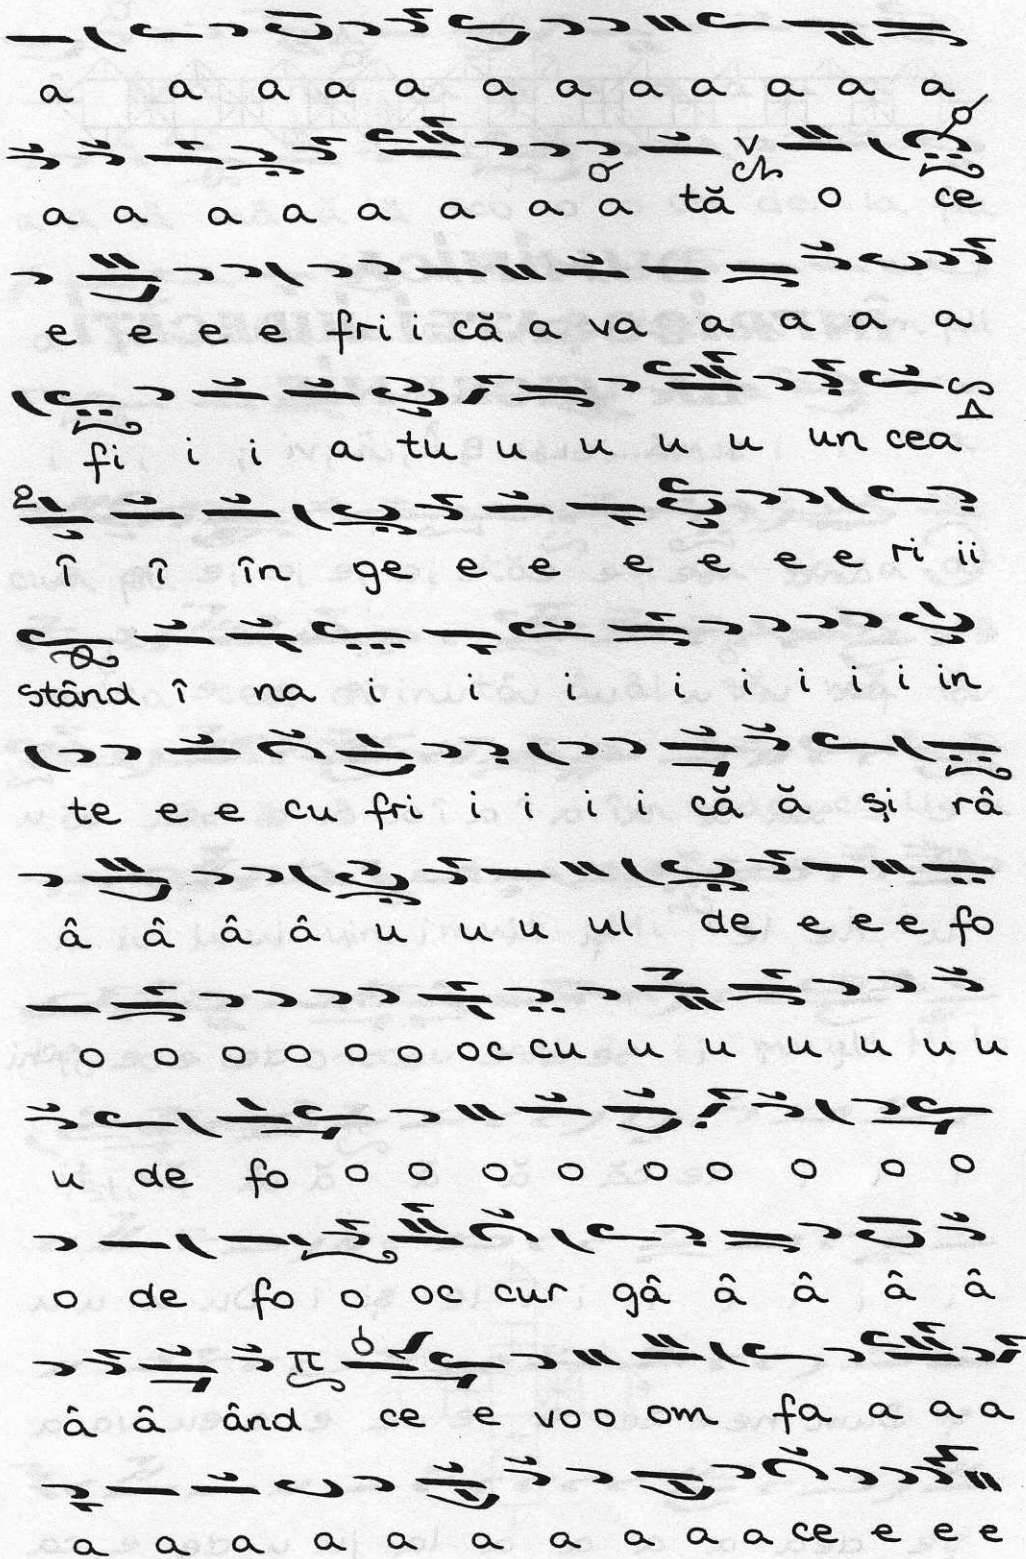 a a a a a a a a a a a a
a a a a a a a a tă o ce
e e e e fri i că a va a a a a
fi i i a tu u u u u un cea
î î în ge e e e e e e ri ii
stând î na i i i i i i i i in
te e e cu fri i i i i că ă și râ
â â â â u u u ul de e e e fo
o o o o o o oc cu u u u u u u
u de fo o o o o o o o o o
o de fo o oc cur gâ â â â â
â â ând ce e vo o om fa a a a
a a a a a a a a a a ce e e e